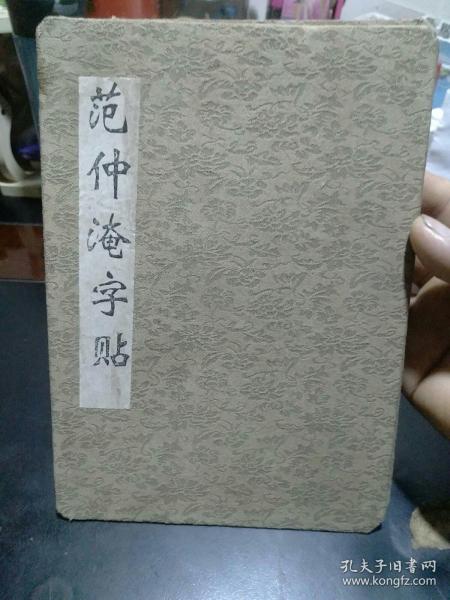 范仲淹字贴
孔夫子旧书网
www.kongfz.com